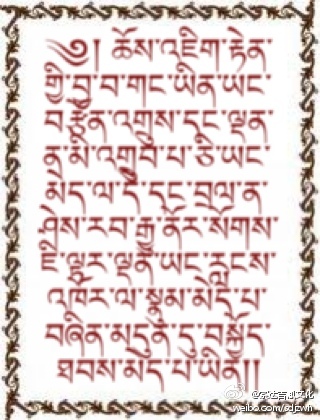 ༄། ཆོས་འཇིག་རྟེན་
གྱི་བྱ་བ་གང་ཡིན་ཡང་
བརྩོན་འགྲུས་དང་ལྡན་
ན་མི་འགྲུབ་པ་ཅི་ཡང་
མེད་ལ་དེ་དང་བྲལ་ན་
ཤེས་རབ་རྒྱུ་ནོར་སོགས་
ཇི་ལྟར་ལྡན་ཡང་རླངས་
འཁོར་ལ་སྣུམ་མེད་པ་
བཞིན་མདུན་དུ་བསྐྱོད་
ཐབས་མེད་པ་ཡིན།།
weibo.com/cdzwh